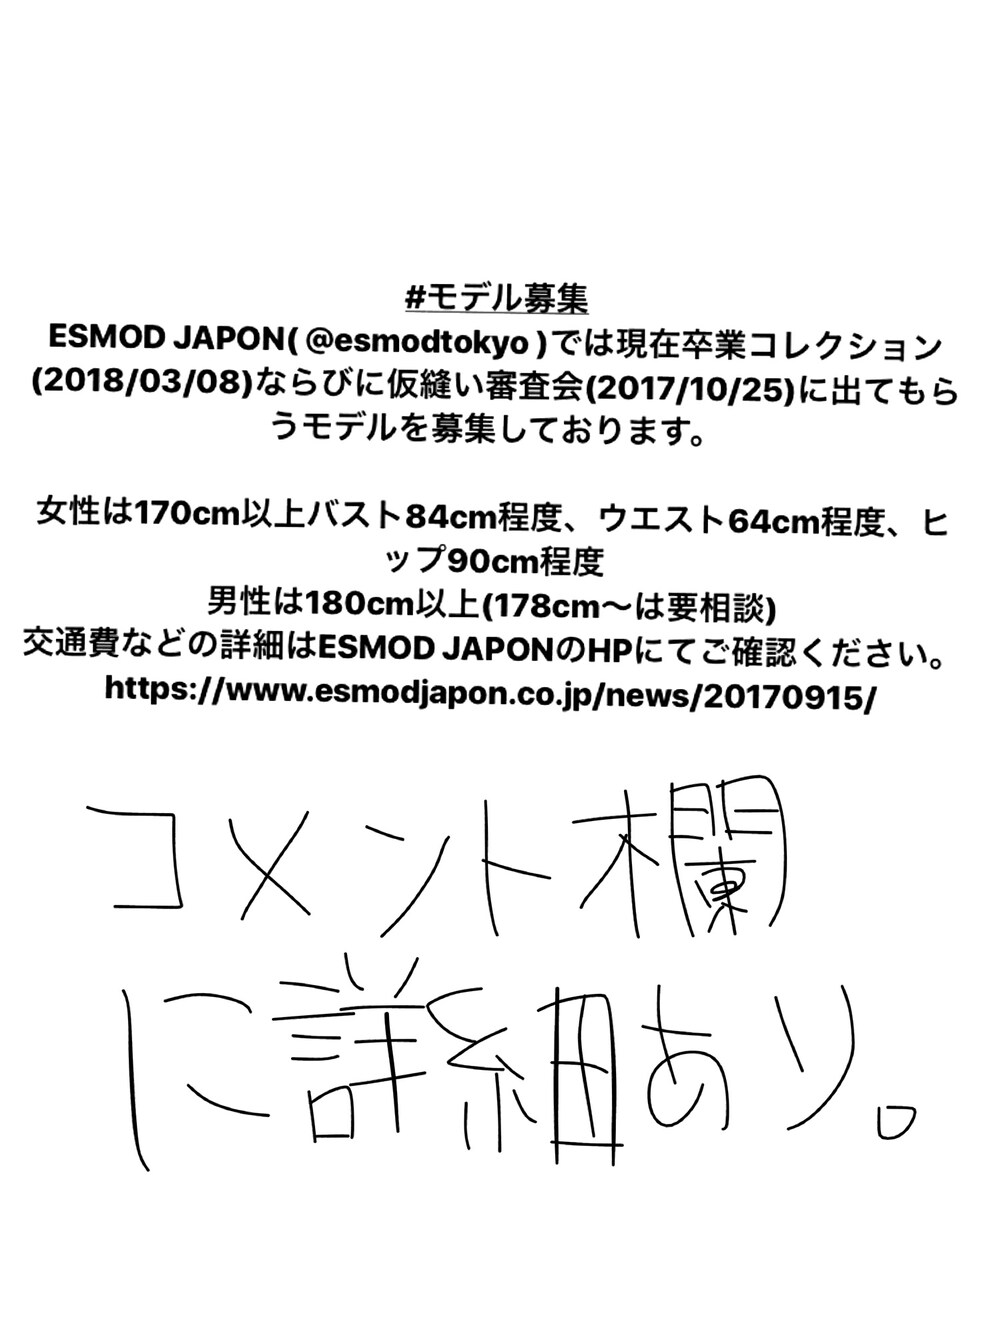 #モデル募集
ESMOD JAPON( @esmodtokyo )では現在卒業コレクション
(2018/03/08)ならびに仮縫い審査会(2017/10/25)に出てもら
うモデルを募集しております。
女性は170cm以上バスト84cm程度、ウエスト64cm程度、ヒ
ップ90cm程度
男性は180cm以上(178cm〜は要相談)
交通費などの詳細はESMOD JAPONのHPにてご確認ください。
https://www.esmodjapon.co.jp/news/20170915/
コメント欄
に詳細あり。